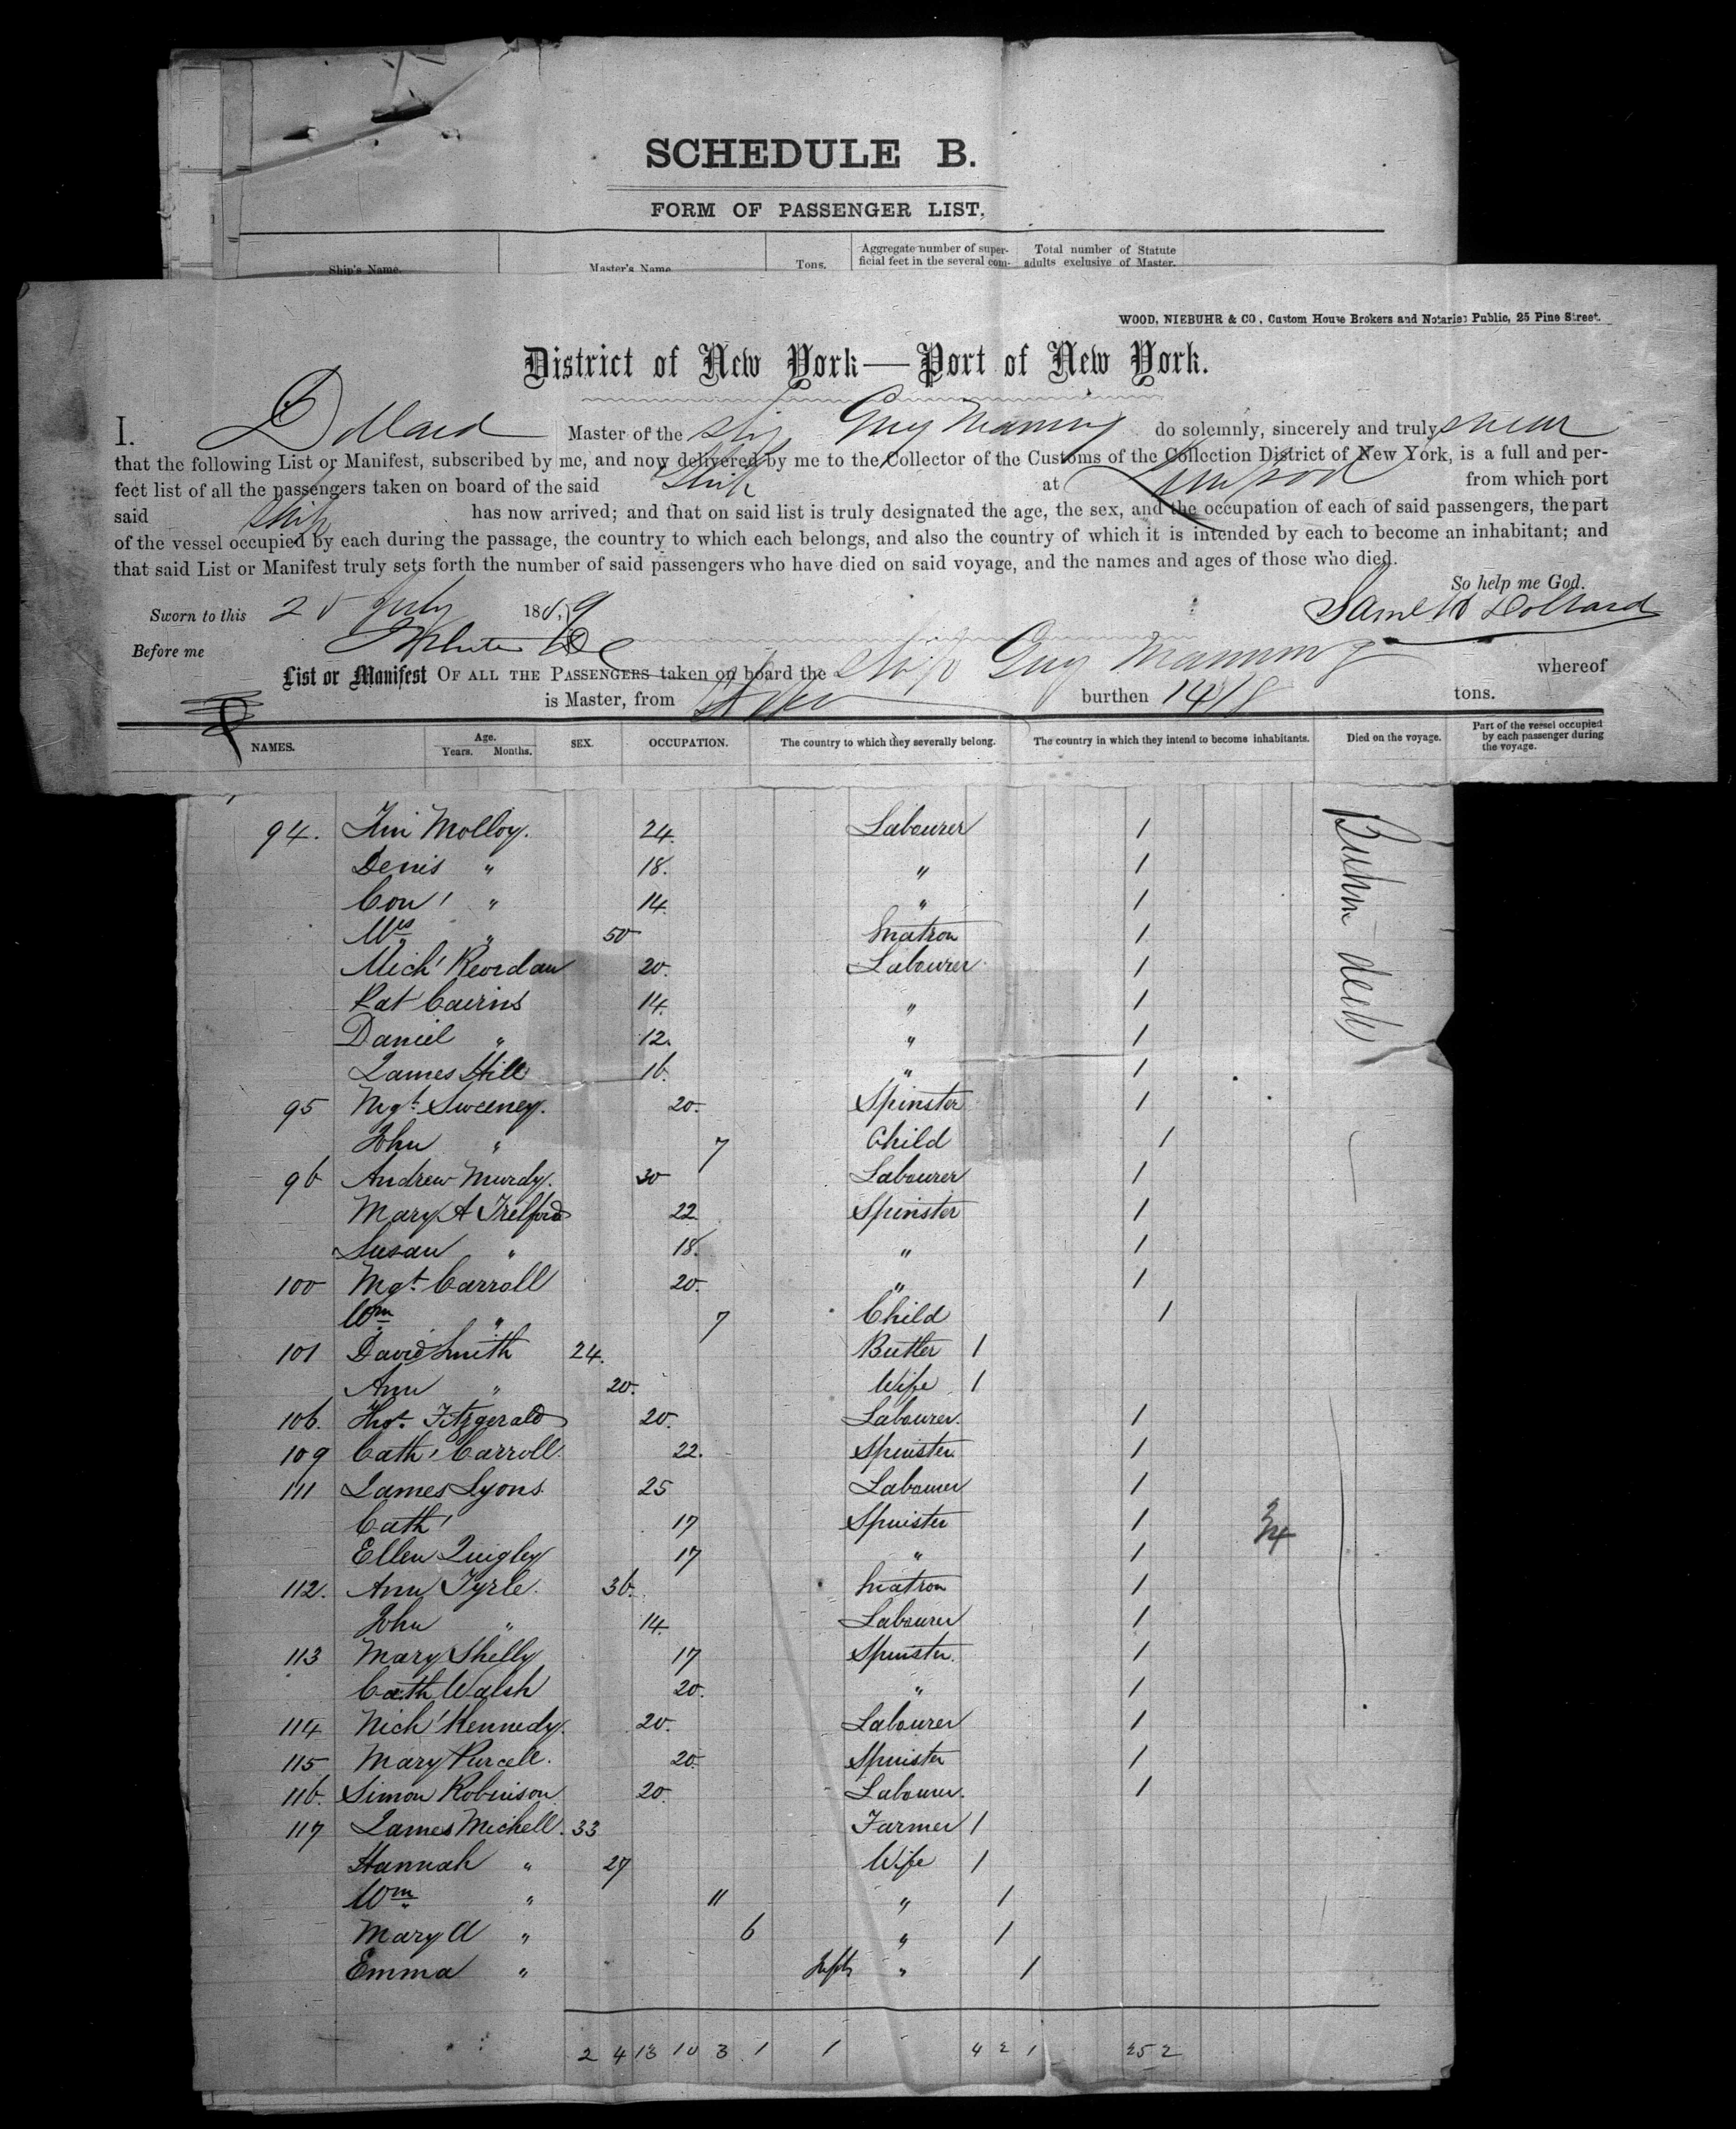 SCHEDULE B.
FORM OF PASSENGER LIST.
Ship's Name. Master's Name Tons. Aggregate number of superficial feet in the several com- Total number of Statute adults exclusive of Master.
WOOD, NIEBUHR & CO, Custom House Brokers and Notaries Public, 25 Pine Street.
District of New York—Port of New York.
I. Dollard Master of the Ship Guy Mannering do solemnly, sincerely and truly swear
that the following List or Manifest, subscribed by me, and now delivered by me to the Collector of the Customs of the Collection District of New York, is a full and per-
fect list of all the passengers taken on board of the said Ship at Liverpool from which port
said Ship has now arrived; and that on said list is truly designated the age, the sex, and the occupation of each of said passengers, the part
of the vessel occupied by each during the passage, the country to which each belongs, and also the country of which it is intended by each to become an inhabitant; and
that said List or Manifest truly sets forth the number of said passengers who have died on said voyage, and the names and ages of those who died.
So help me God.
Sworn to this 20 July 1869 Dollard
Before me
List or Manifest OF ALL THE PASSENGERS taken on board the Ship Guy Mannering whereof
is Master, from burthen 1418 tons.
NAMES. Age. Years. Months. SEX. OCCUPATION. The country to which they severally belong. The country in which they intend to become inhabitants. Died on the voyage. Part of the vessel occupied by each passenger during the voyage.
94. Molloy. 24. Labourer 1
Denis " 18. " 1
Con' " 14. " 1
Mrs " 50 Matron 1
Mich' Reordan 20. Labourer 1
Pat Cairns 14. " 1
Daniel " 12. " 1
James Hill 16. " 1
95 Mgt. Sweeney. 20. Spinster 1
John " 7 Child 1
96 Andrew Murdy. 30 Labourer 1
Mary A Trelford 22 Spinster 1
Susan " 18. " 1
100 Mgt. Carroll 20. " 1
Wm " 7 Child 1
101 David Smith 24. Butler 1
Ann " 20. Wife 1
106. Fitzgerald 20. Labourer. 1
109 Cath' Carroll 22. Spinster 1
111 James Lyons. 25 Labourer 1
Cath' 17 Spinster 1
Ellen Quigley 17 " 1
112. Ann Tyrle. 36. Matron 1
John " 14. Labourer 1
113 Mary Shelly 17 Spinster. 1
Cath Walsh 20. " 1
114 Nich' Kennedy. 20. Labourer 1
115 Mary Purcell. 20. Spinster 1
116. Simon Robinson 20. Labourer. 1
117 James Michell. 33 Farmer 1
Hannah " 27 Wife 1
Wm " 11 " 1
Mary A " 6 " 1
Emma " " 1
2 4 13 10 3 1 1 4 2 1 25 2